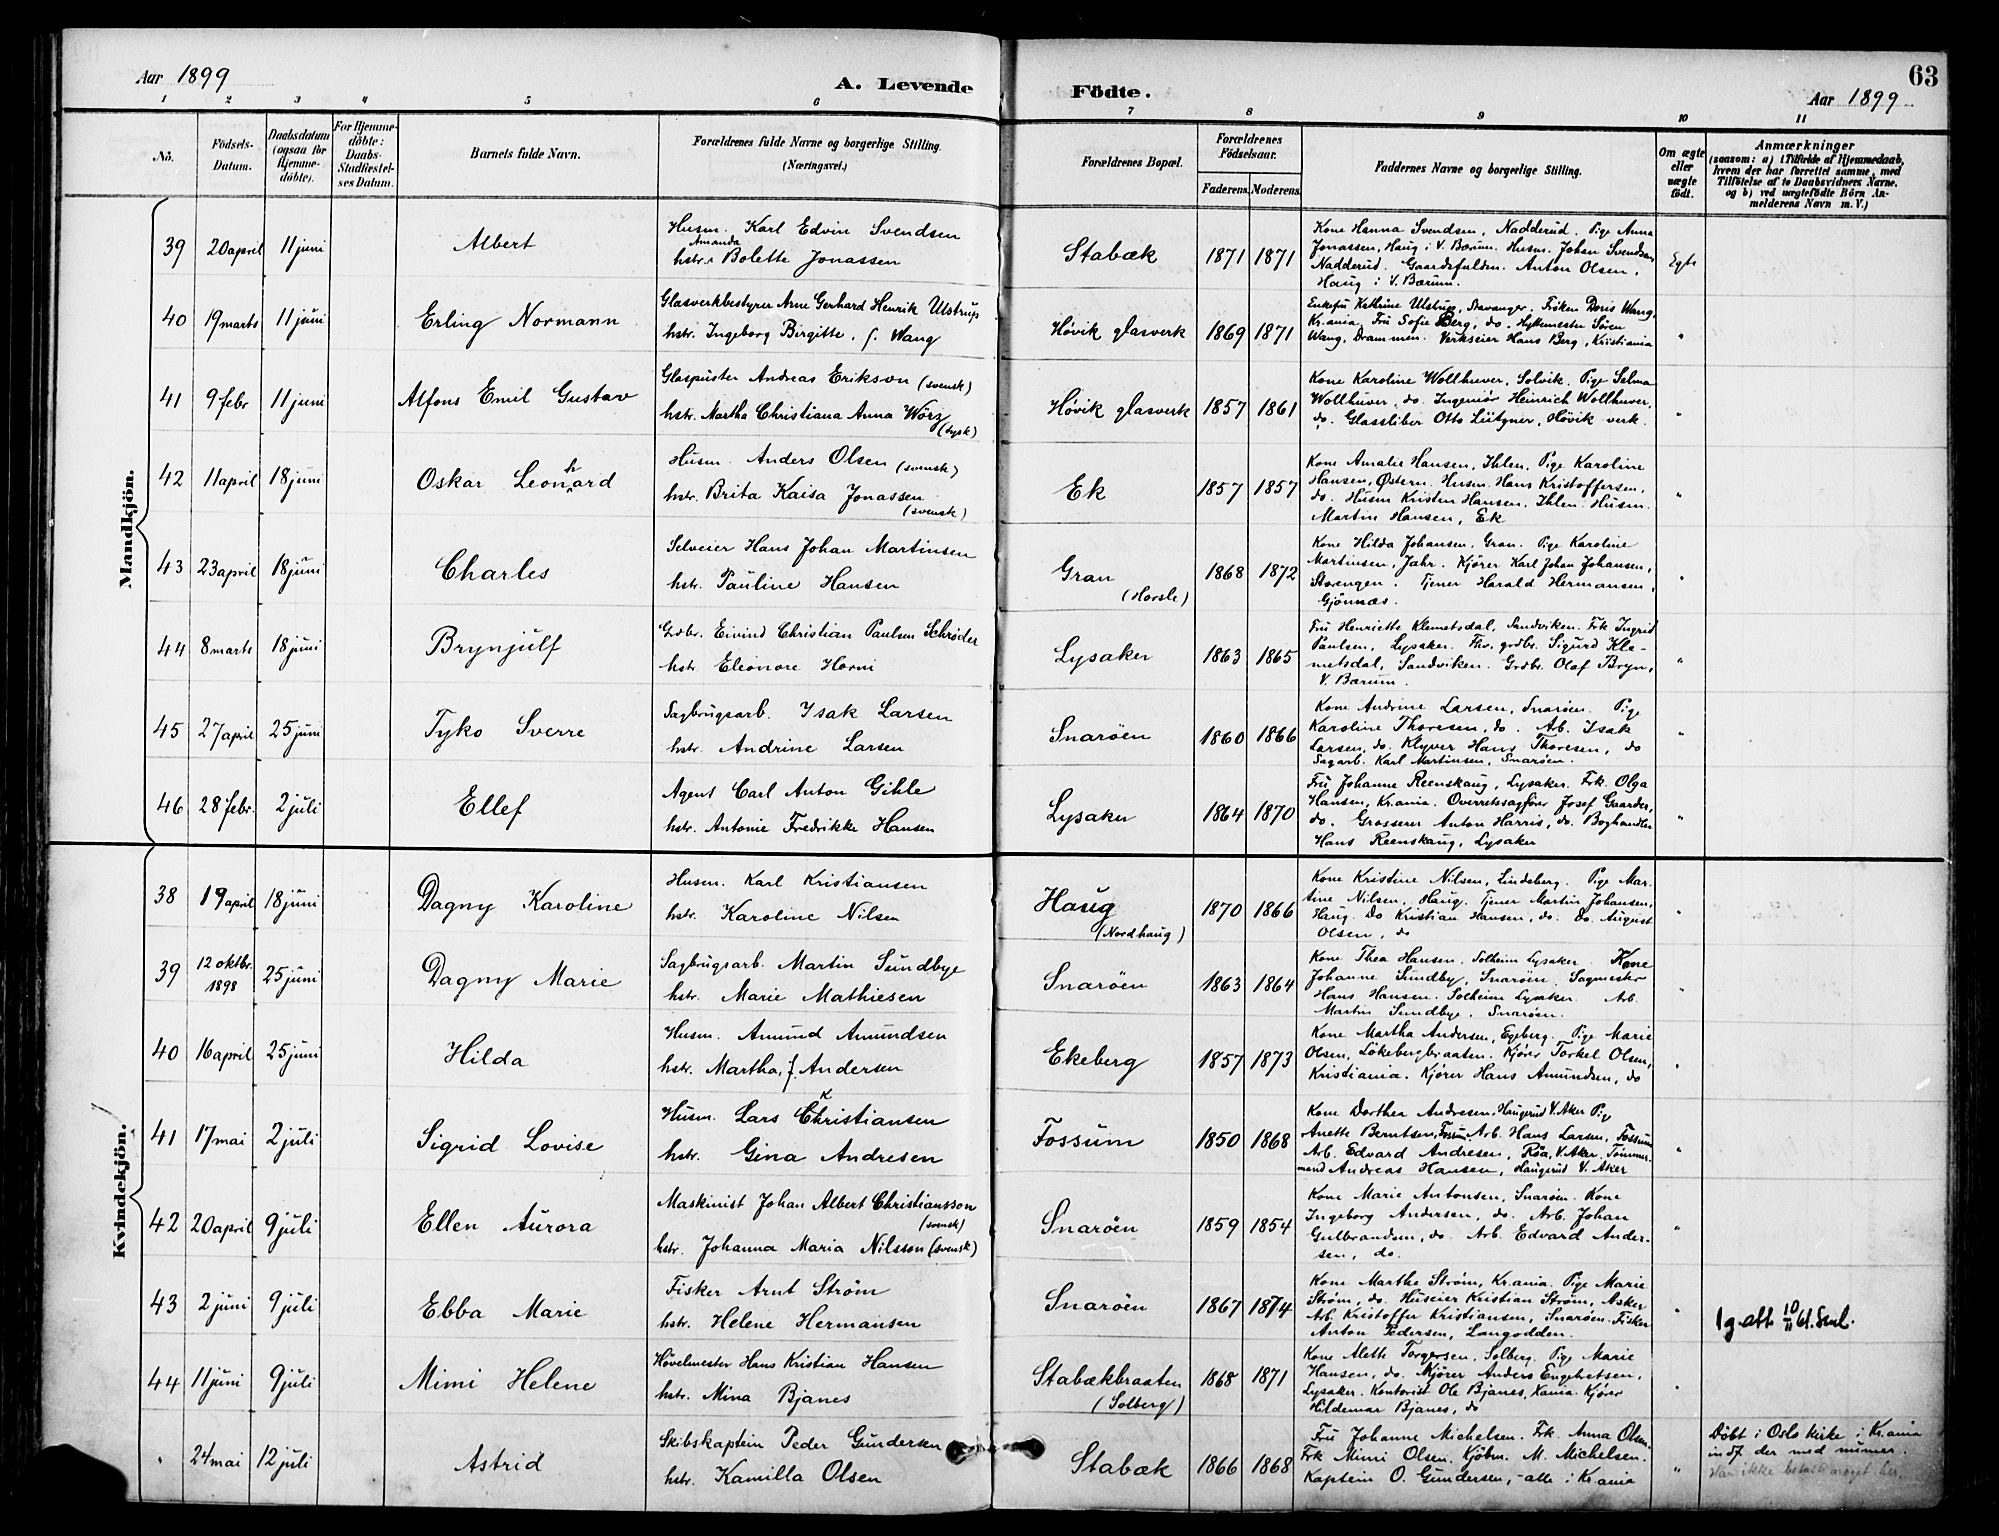 Aar 1899
A. Levende Födte.
63
Aar 1899
1 2 3 4 5 6 7 8 9 10 11
No.
Födsels-
Datum.
Daabsdatum
(ogsaa for
Hjemme-
döbte).
For Hjemme-
döbte:
Daabs-
Stadfæstel-
ses Datum.
Barnets fulde Navn.
Forældrenes fulde Navne og borgerlige Stilling.
(Næringsvei.)
Forældrenes Bopæl.
Forældrenes
Födselsaar.
Faderens. Moderens.
Faddernes Navne og borgerlige Stilling.
Om ægte
eller
uægte
födt.
Anmærkninger
(saasom: a) i Tilfælde af Hjemmedaab,
hvem der har forrettet samme, med
Tilföielse af to Daabsvidners Navne.
og b) ved uægtefödte Börn An-
melderens Navn m. V.)
Mandkjön.
39 20 april 11 juni Albert
Husm. Karl Edvin Svendsen
Amanda
hstr. Bolette Jonassen
Stabæk 1871 1871
Kone Hanna Svendsen, Nadderud. Pige Anna
Jonassen, Haug i V. Bærum. Husm. Johan Svendsen
Nadderud. Gaardsfuldm. Anton Olsen,
Haug i V. Bærum.
Egte
40 19 marts 11 juni Erling Normann
Glasverkbestyrer Arne Gerhard Henrik Ulstrup
hstr. Ingeborg Birgitte, f. Wang
Høvik glasverk 1869 1871
Enkefru Kathrine Ulstrup, Stavanger. Frøken Doris Wang,
Kr.ania. Fru Sofie Berg, do. Hyttemester Søren
Wang, Drammen. Verkseier Hans Berg, Kristiania
"
41 9 febr 11 juni Alfons Emil Gustav
Glaspuster Andreas Erikson (svensk)
hstr. Martha Christiana Anna Wörz
(tysk)
Høvik glasverk 1857 1861
Kone Karoline Wollhuver, Solvik. Pige Selma
Wollhuver, do. Ingeniør Heinrich Wollhuver,
do. Glassliber Otto Lütgner, Høvik verk.
"
42 11 april 18 juni Oskar Leonhard
Husm. Anders Olsen (svensk)
hstr. Brita Kaisa Jonassen
(svensk)
Ek 1857 1857
Kone Amalie Hansen, Ihlen. Pige Karoline
Hansen, Østern. Husm. Hans Kristoffersen,
do. Husm Kristen Hansen, Ihlen. Husm.
Martin Hansen, Ek
"
43 23 april 18 juni Charles
Selveier Hans Johan Martinsen
hstr. Pauline Hansen
Gran
(Horsle)
1868 1872
Kone Hilda Johansen, Gran. Pige Karoline
Martinsen, Jahr. Kjører Karl Johan Johansen,
Storengen. Tjener Harald Hermansen,
Gjønnæs.
"
44 8 marts 18 juni Brynjulf
Grdbr. Eivind Christian Paulsen Schrøder
hstr Eleonore Horni
Lysaker 1863 1865
Fru Henriette Klemetsdal, Sandviken. Frk Ingrid
Paulsen, Lysaker. Fhv. grdbr. Sigurd Kle-
metsdal, Sandviken. Grdbr. Olaf Bryn,
V. Bærum.
"
45 27 april 25 juni Tyko Sverre
Sagbrugsarb. Isak Larsen
hstr. Andrine Larsen
Snarøen 1860 1866
Kone Andrine Larsen, Snarøen. Pige
Karoline Thoresen, do. Arb. Isak
Larsen, do. Klyver Hans Thoresen, do
Sagarb. Karl Martinsen, Snarøen.
"
46 28 febr. 2 juli Ellef
Agent Carl Anton Gihle
hstr. Antonie Fredrikke Hansen
Lysaker 1864 1870
Fru Johanne Reenskaug, Lysaker. Frk. Olga
Hansen, Kr.ania. Overretssagfører Josef Gaarder,
do. Grosserer Anton Harris, do. Boghandler
Hans Reenskaug, Lysaker
"
Kvindekjön.
38 19 april 18 juni Dagny Karoline
Husm. Karl Kristiansen
hstr. Karoline Nilsen
Haug
(Nordhaug)
1870 1866
Kone Kristine Nilsen, Lindeberg. Pige Mar-
tine Nilsen, Haug. Tjener Martin Johansen,
Haug. Do Kristian Hansen, do. Do. August
Olsen, do
"
39 12 oktbr.
1898
25 juni Dagny Marie
Sagbrugsarb. Martin Sundbye
hstr. Marie Mathiesen
Snarøen 1863 1864
Kone Thea Hansen, Solheim Lysaker. Kone
Johanne Sundby, Snarøen. Sagmester
Hans Hansen. Solheim Lysaker. Arb.
Martin Sundbye, Snarøen.
"
40 16 april 25 juni Hilda
Husm. Amund Amundsen
hstr. Martha, f. Andersen
Ekeberg 1857 1873
Kone Martha Andersen, Egeberg. Pige Marie
Olsen, Løkebergbraaten. Kjører Torkel Olsen,
Kristiania. Kjører Hans Amundsen, do
"
41 17 mai 2 juli Sigrid Lovise
Husm. Lars Christiansen
K
hstr. Gina Andresen
Fossum 1850 1868
Kone Dorthea Andresen, Haugerud V. Aker Pige
Anette Berntsen, Fossum. Arb. Hans Larsen, Fossum
Arb. Edvard Andresen, Røa, V. Aker. Tømmer-
mand Andreas Hansen, Haugerud V. Aker
"
42 20 april 9 juli Ellen Aurora
Maskinist Johan Albert Christiansson
(svensk)
hstr. Johanna Maria Nilsson (svensk)
Snarøen 1859 1854
Kone Marie Antonsen, Snarøen. Kone
Ingeborg Andersen, do. Arb. Johan
Gulbrandsen, do. Arb. Edvard Ander-
sen, do.
"
43 2 juni 9 juli Ebba Marie
Fisker Arnt Strøm
hstr. Helene Hermansen
Snarøen 1867 1874
Kone Marthe Strøm, Kr.ania. Pige Marie
Strøm, do. Huseier Kristian Strøm, Asker
Arb. Kristoffer Kristiansen, Snarøen. Fisker
Anton Pedersen, Langodden.
"
1 g. att. 10/11 61.
44 11 juni 9 juli Mimi Helene
Høvelmester Hans Kristian Hansen
hstr. Mina Bjanes
Stabækbraaten
(Solberg)
1868 1871
Kone Alette Torgersen, Solberg. Pige Marie
Hansen, do. Kjører Anders Engebretsen,
Lysaker. Kontorist Ole Bjanes, Xania. Kjører
Hildemar Bjanes, do
"
" 24 mai 12 juli Astrid
Skibskaptein Peder Gundersen
hstr. Kamilla Olsen
Stabæk 1866 1868
Fru Johanne Michelsen. Frk. Anna Olsen.
Frk Mimi Olsen. Kjøbm. M. Michelsen.
Kaptein O. Gundersen, - alle i Kr.ania
"
Döbt i Oslo kirke i Kr.ania
indf. der med numer.
Har ikke betalt noget her.